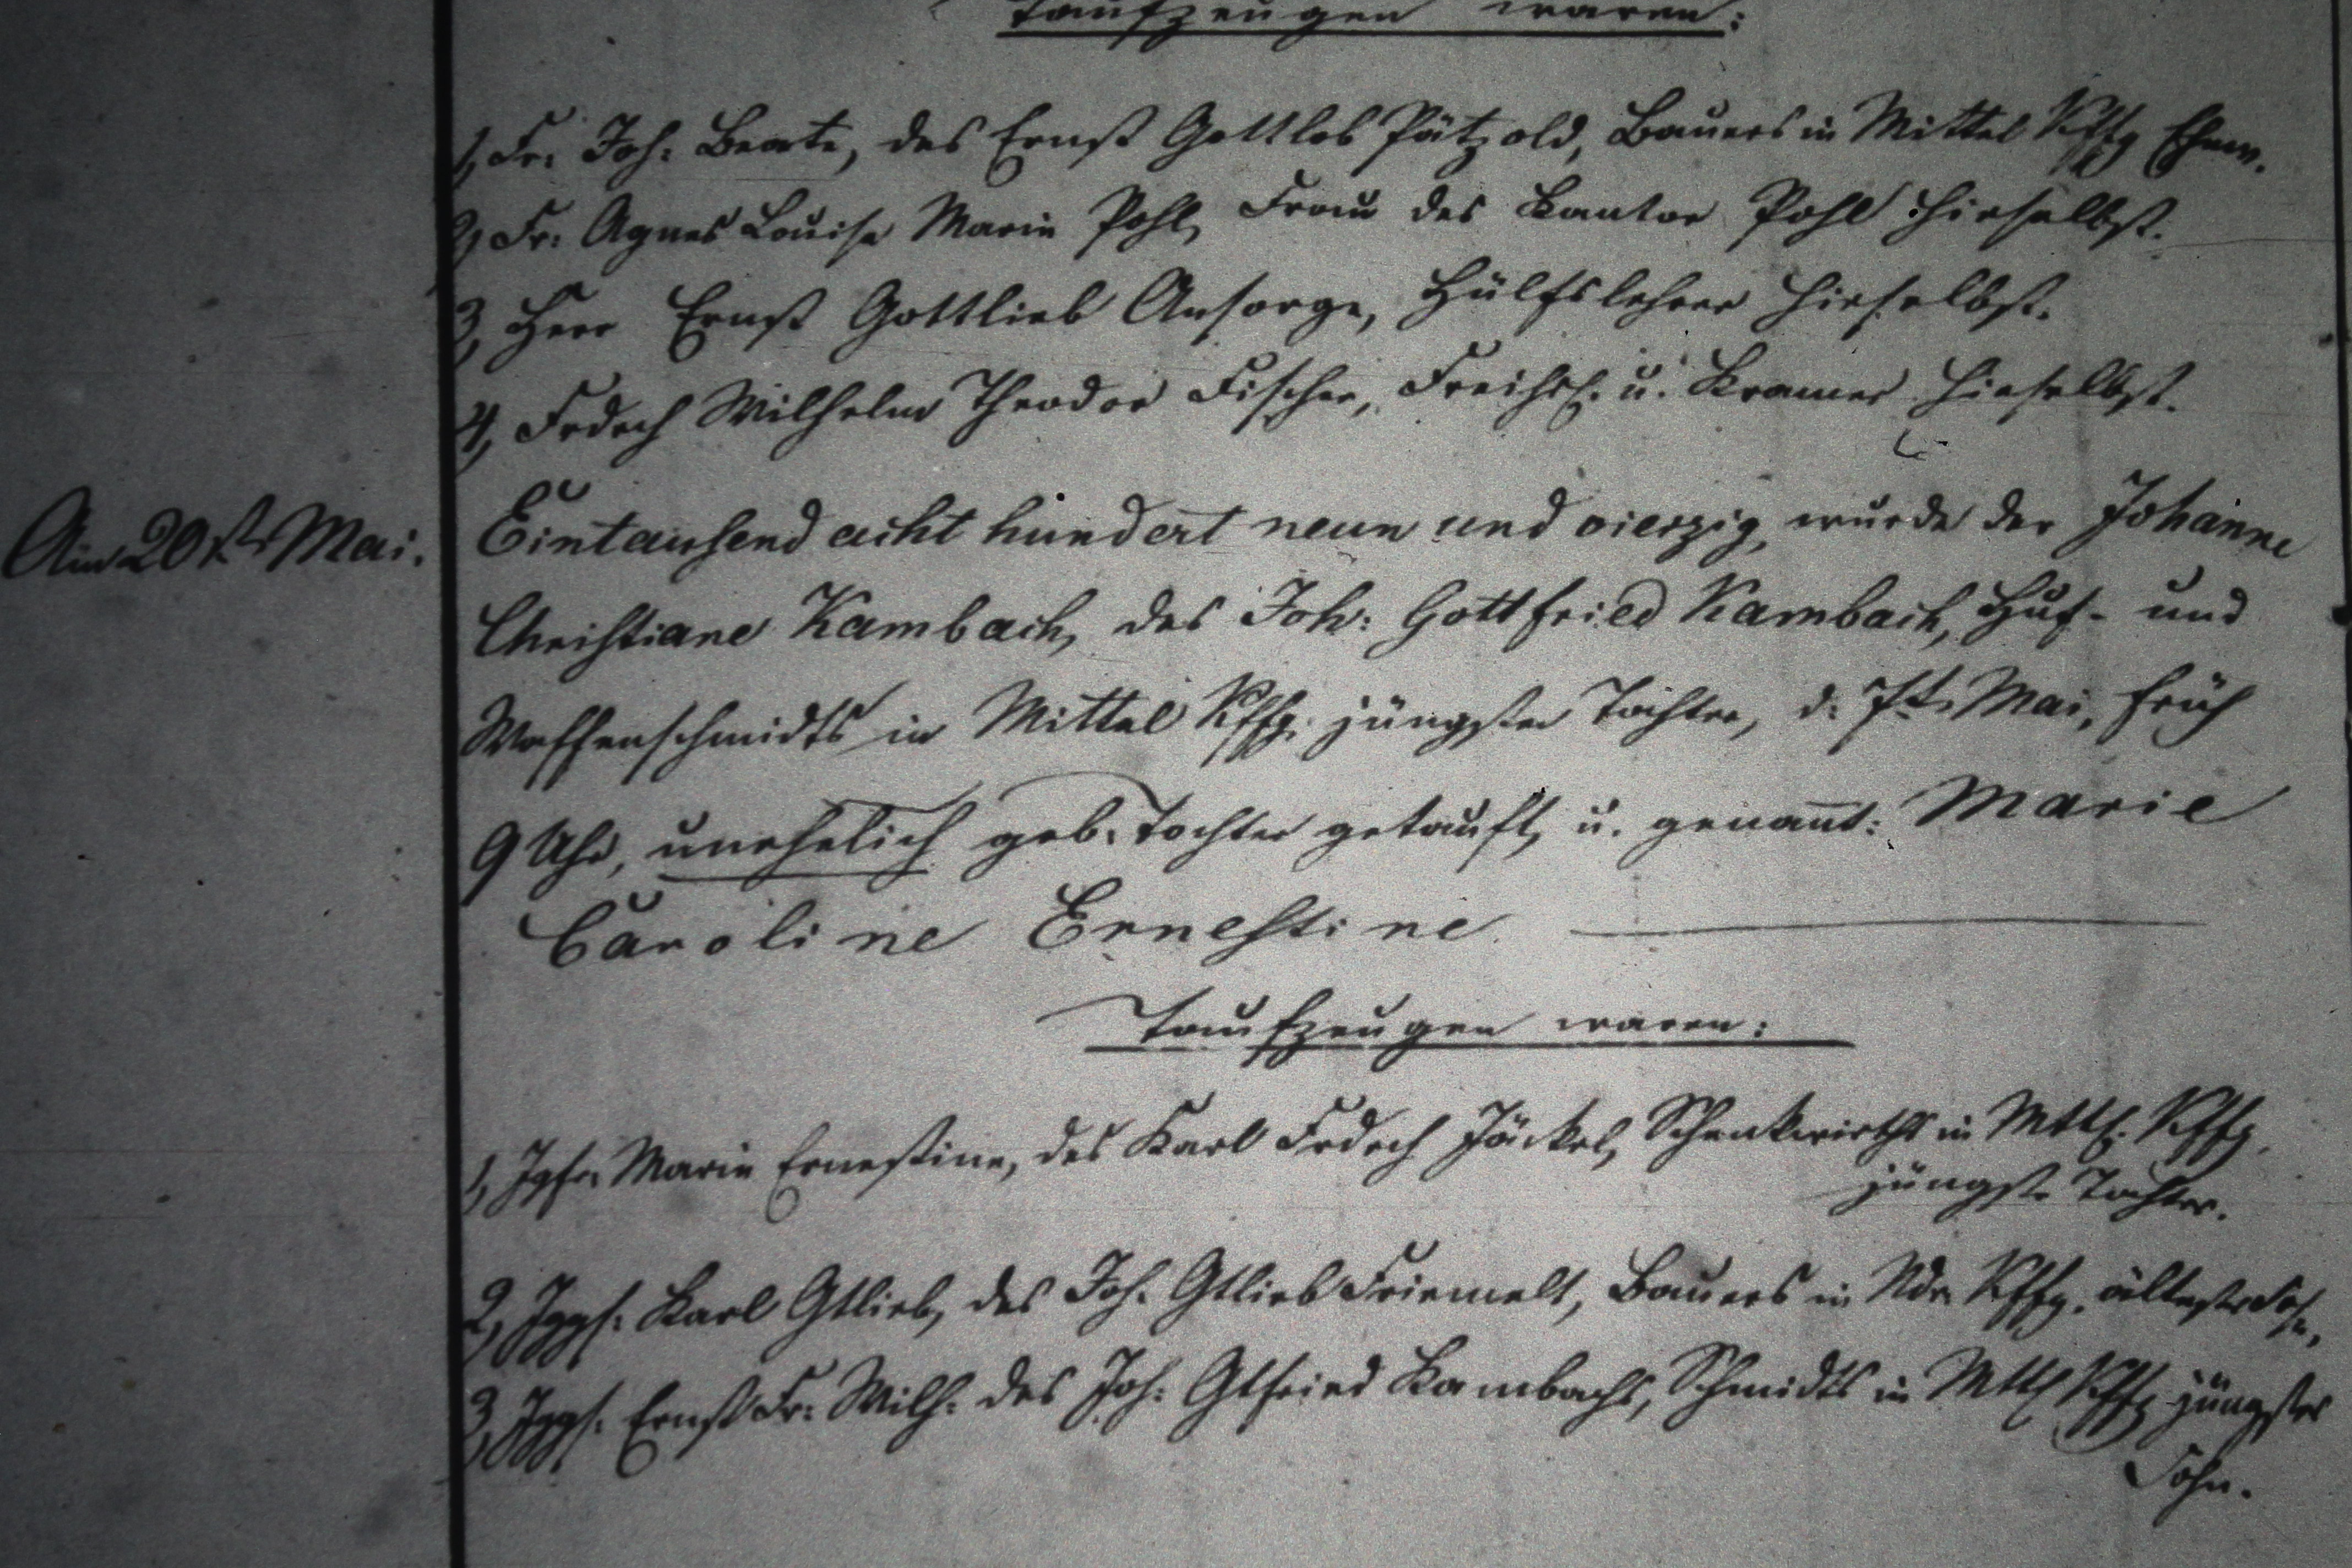 Taufzeugen waren:
1, Fr: Joh: Beate, des Ernst Gottlob Pätzold, Bauers in Mittel Kffg Ehew.
2, Fr: Agnes Louise Marie Pohl, Frau des Kantor Pohl hieselbst.
3, Herr Ernst Gottlieb Ansorge, Hülfslehrer hieselbst.
4, Frdrch Wilhelm Theodor Fischer, u. Kramer hieselbst.
Am 20st. Mai. Eintausend acht hundert neun und vierzig, wurde der Johanne
Christiane Kambach, des Joh: Gottfried Kambach, Huf- und
Waffenschmidts in Mittel Kffg. jüngsten Tochter, d. 7t. Mai, früh
9 Uhr, unehelich geb. Tochter getauft, u. genannt: Marie
Caroline Ernestine.
Taufzeugen waren:
1, Jgfr. Marie Ernestine, des Karl Frdrch Jäckel, Schenkwirths in Mttl. Kffg.
jüngste Tochter.
2, Jggs: Karl Gtlieb, des Joh. Gtlieb Friemelt, Bauers in Ndr. Kffg. ältester Sohn,
3, Jggs: Ernst Fr: Wilh: des Joh: Gtfried Kambachs, Schmidts in Mttl Kffg jüngster
Sohn.